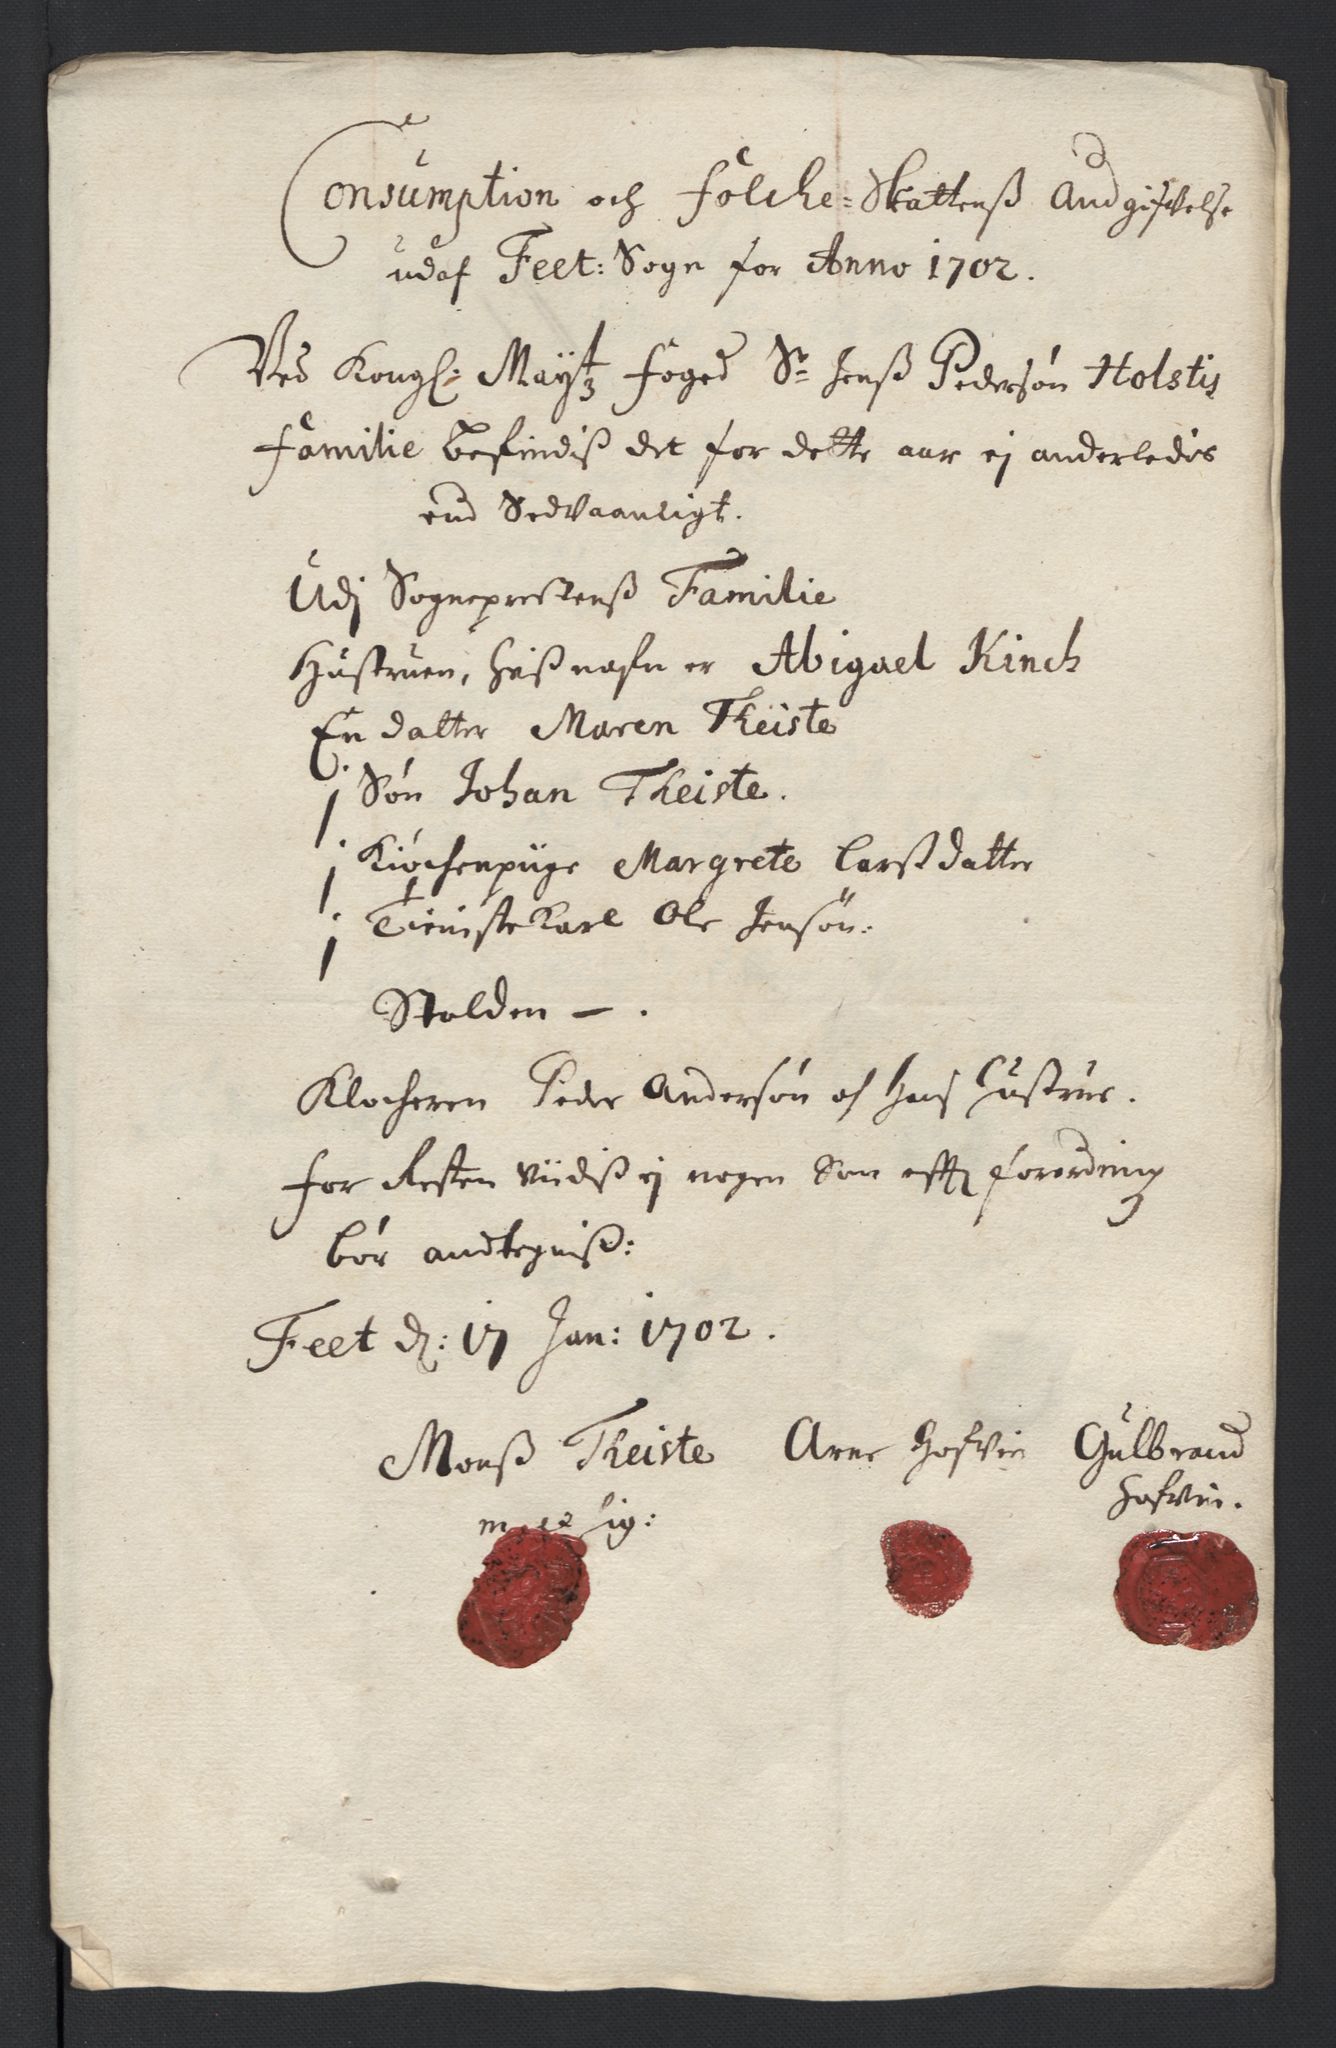 Consumption och folche-Skattenß Andgifvelse
udaf Feet: Sogn for Anno 1702.
Ved Kongl: Mayꝭt foged Sr Jenß Pedersøn Holstis
familie befindiß det for dette aar ej anderledis
end Sedvaanligt.
Udj Sogneprestenß Familie
Hustruen, hvis nafn er Abigael Kinch
En datter Maren Theiste
j Søn Johan Theiste.
j Kiøchenpiige Margrete Larsdatter
j Tieniste Karl Ole Jensøn:
Stolden — .
Klocheren Peder Andersøn og hans hustrue.
for Resten viidiß ej nogen Som efter forordning
bør andtegniß:
Feet d: 17 Jan: 1702.
Monß Theiste Arne Hofvin Gulbrand
Hofvin.
sig: